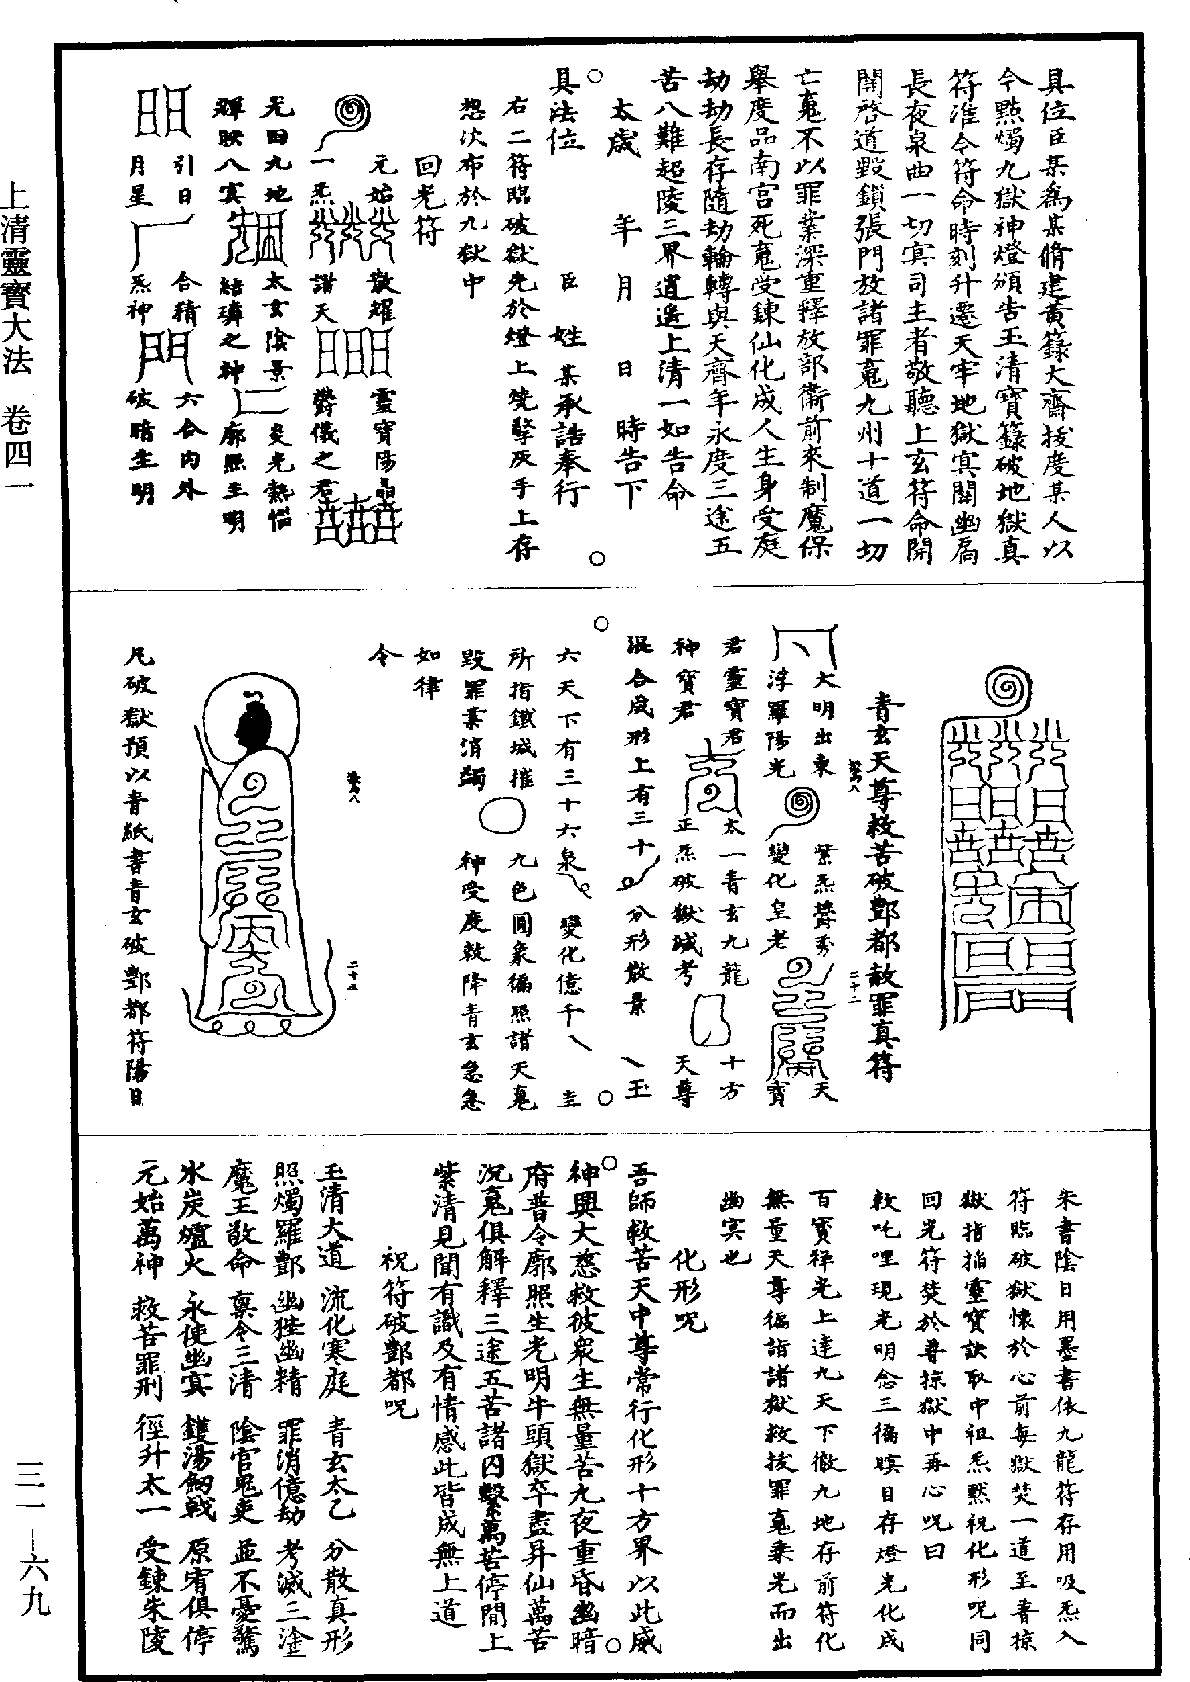 具位臣某為某脩建黃籙大齋拔度某人以
今點燭九獄神燈頒告玉清寶籙破地獄真
符准令符命時刻升遷天牢地獄㝠關幽扃
長夜泉曲一切㝠司主者敬聽上玄符命開
開啓道毀鎖張門放諸罪䰟九州十道一切
亡䰟不以罪業深重釋放部衛前來制魔保
舉度品南宮死䰟受鍊仙化成人生身受度
劫劫長存隨劫輪轉與天齊年永度三途五
苦八難超陵三界逍遙上清一如告命
太歲 年 月 日 時告下
具法位 臣 姓 某承誥奉行
右二符臨破獄光於燈上焚擎灰手上存
想次布於九獄中
回光符
元始 散耀 靈寶陽晶
一炁 諸天 欝儀之君
光回九地 太玄陰景 炎光熱惱
輝映八㝠 結璘之神 廓照生明
引日 合精 六合內外
月星 炁神 破暗生明
青玄天尊救苦破酆都赦罪真符
大明出東 紫炁欝秀 天
浮羅陽光 變化皇老 寶
君靈寶君 太一青玄九龍 十方
神寶君 正炁破獄滅考 天尊
混合成形上有三十 分形散景 玉
六天下有三十六泉 變化億千 主
所指鐵城摧 九色圓象徧照諸天䰟
毀罪業消蠲 神受度敕降青玄急急
如律
令
凡破獄預以青紙書青玄破酆都符陽日
朱書陰日用墨書依九龍符存用吸炁入
符臨破獄懷於心前每獄焚一道至普掠
獄指掐靈寶訣取中祖炁黙祝化形呪同
回光符焚於普掠獄中再心呪曰
敕吒哩現光明念三徧瞑目存燈光化成
百寶祥光上達九天下徹九地存前符化
無量天尊徧詣諸獄救拔罪䰟乘光而出
幽㝠也
化形呪
吾師救苦天中尊常行化形十方界以此威
神興大慈救彼衆生無量苦九夜重昏幽暗
府普令廓照生光明牛頭獄卒盡昇仙萬苦
沉䰟俱解釋三途五苦諸囚繫萬苦停閒上
紫清見聞有識及有情感此皆成無上道
祝符破酆都呪
玉清大道 流化寒庭 青玄太乙 分散真形
照燭羅酆 幽狴幽精 罪消億劫 考滅三塗
魔王敬命 禀令三清 陰官鬼吏 並不憂驚
氷炭爐火 永使幽㝠 鑊湯劒戟 原宥俱停
元始萬神 救苦罪刑 徑升太一 受鍊朱陵
上清靈寶大法 卷四一
三一–六九